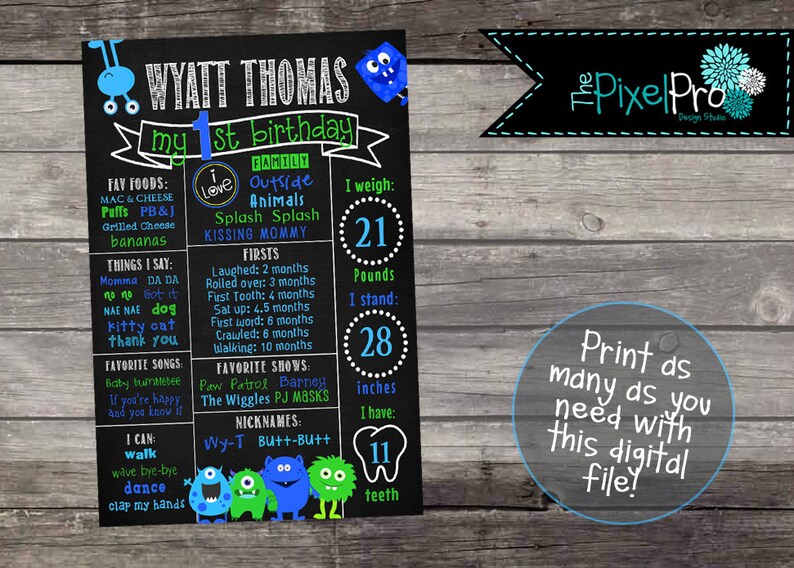 WYATT THOMAS
my 1st birthday
FAV FOODS:
MAC & CHEESE
Puffs PB&J
Grilled Cheese
bananas
THINGS I SAY:
Momma DA DA
no no Got it
NAE NAE dog
kitty cat
thank you
FAVORITE SONGS:
Baby bumblebee
If you're happy
and you know it
I CAN:
walk
wave bye-bye
dance
clap my hands
i Love
FAMILY
Outside
Animals
Splash Splash
KISSING MOMMY
FIRSTS
Laughed: 2 months
Rolled over: 3 months
First Tooth: 4 months
Sat up: 4.5 months
First word: 6 months
Crawled: 6 months
Walking: 10 months
FAVORITE SHOWS:
Paw Patrol Barney
The Wiggles PJ MASKS
NICKNAMES:
Wy-T Butt-Butt
I weigh:
21
Pounds
I stand:
28
inches
I have:
11
teeth
The PixelPro
Design Studio
Print as
many as you
need with
this digital
file!